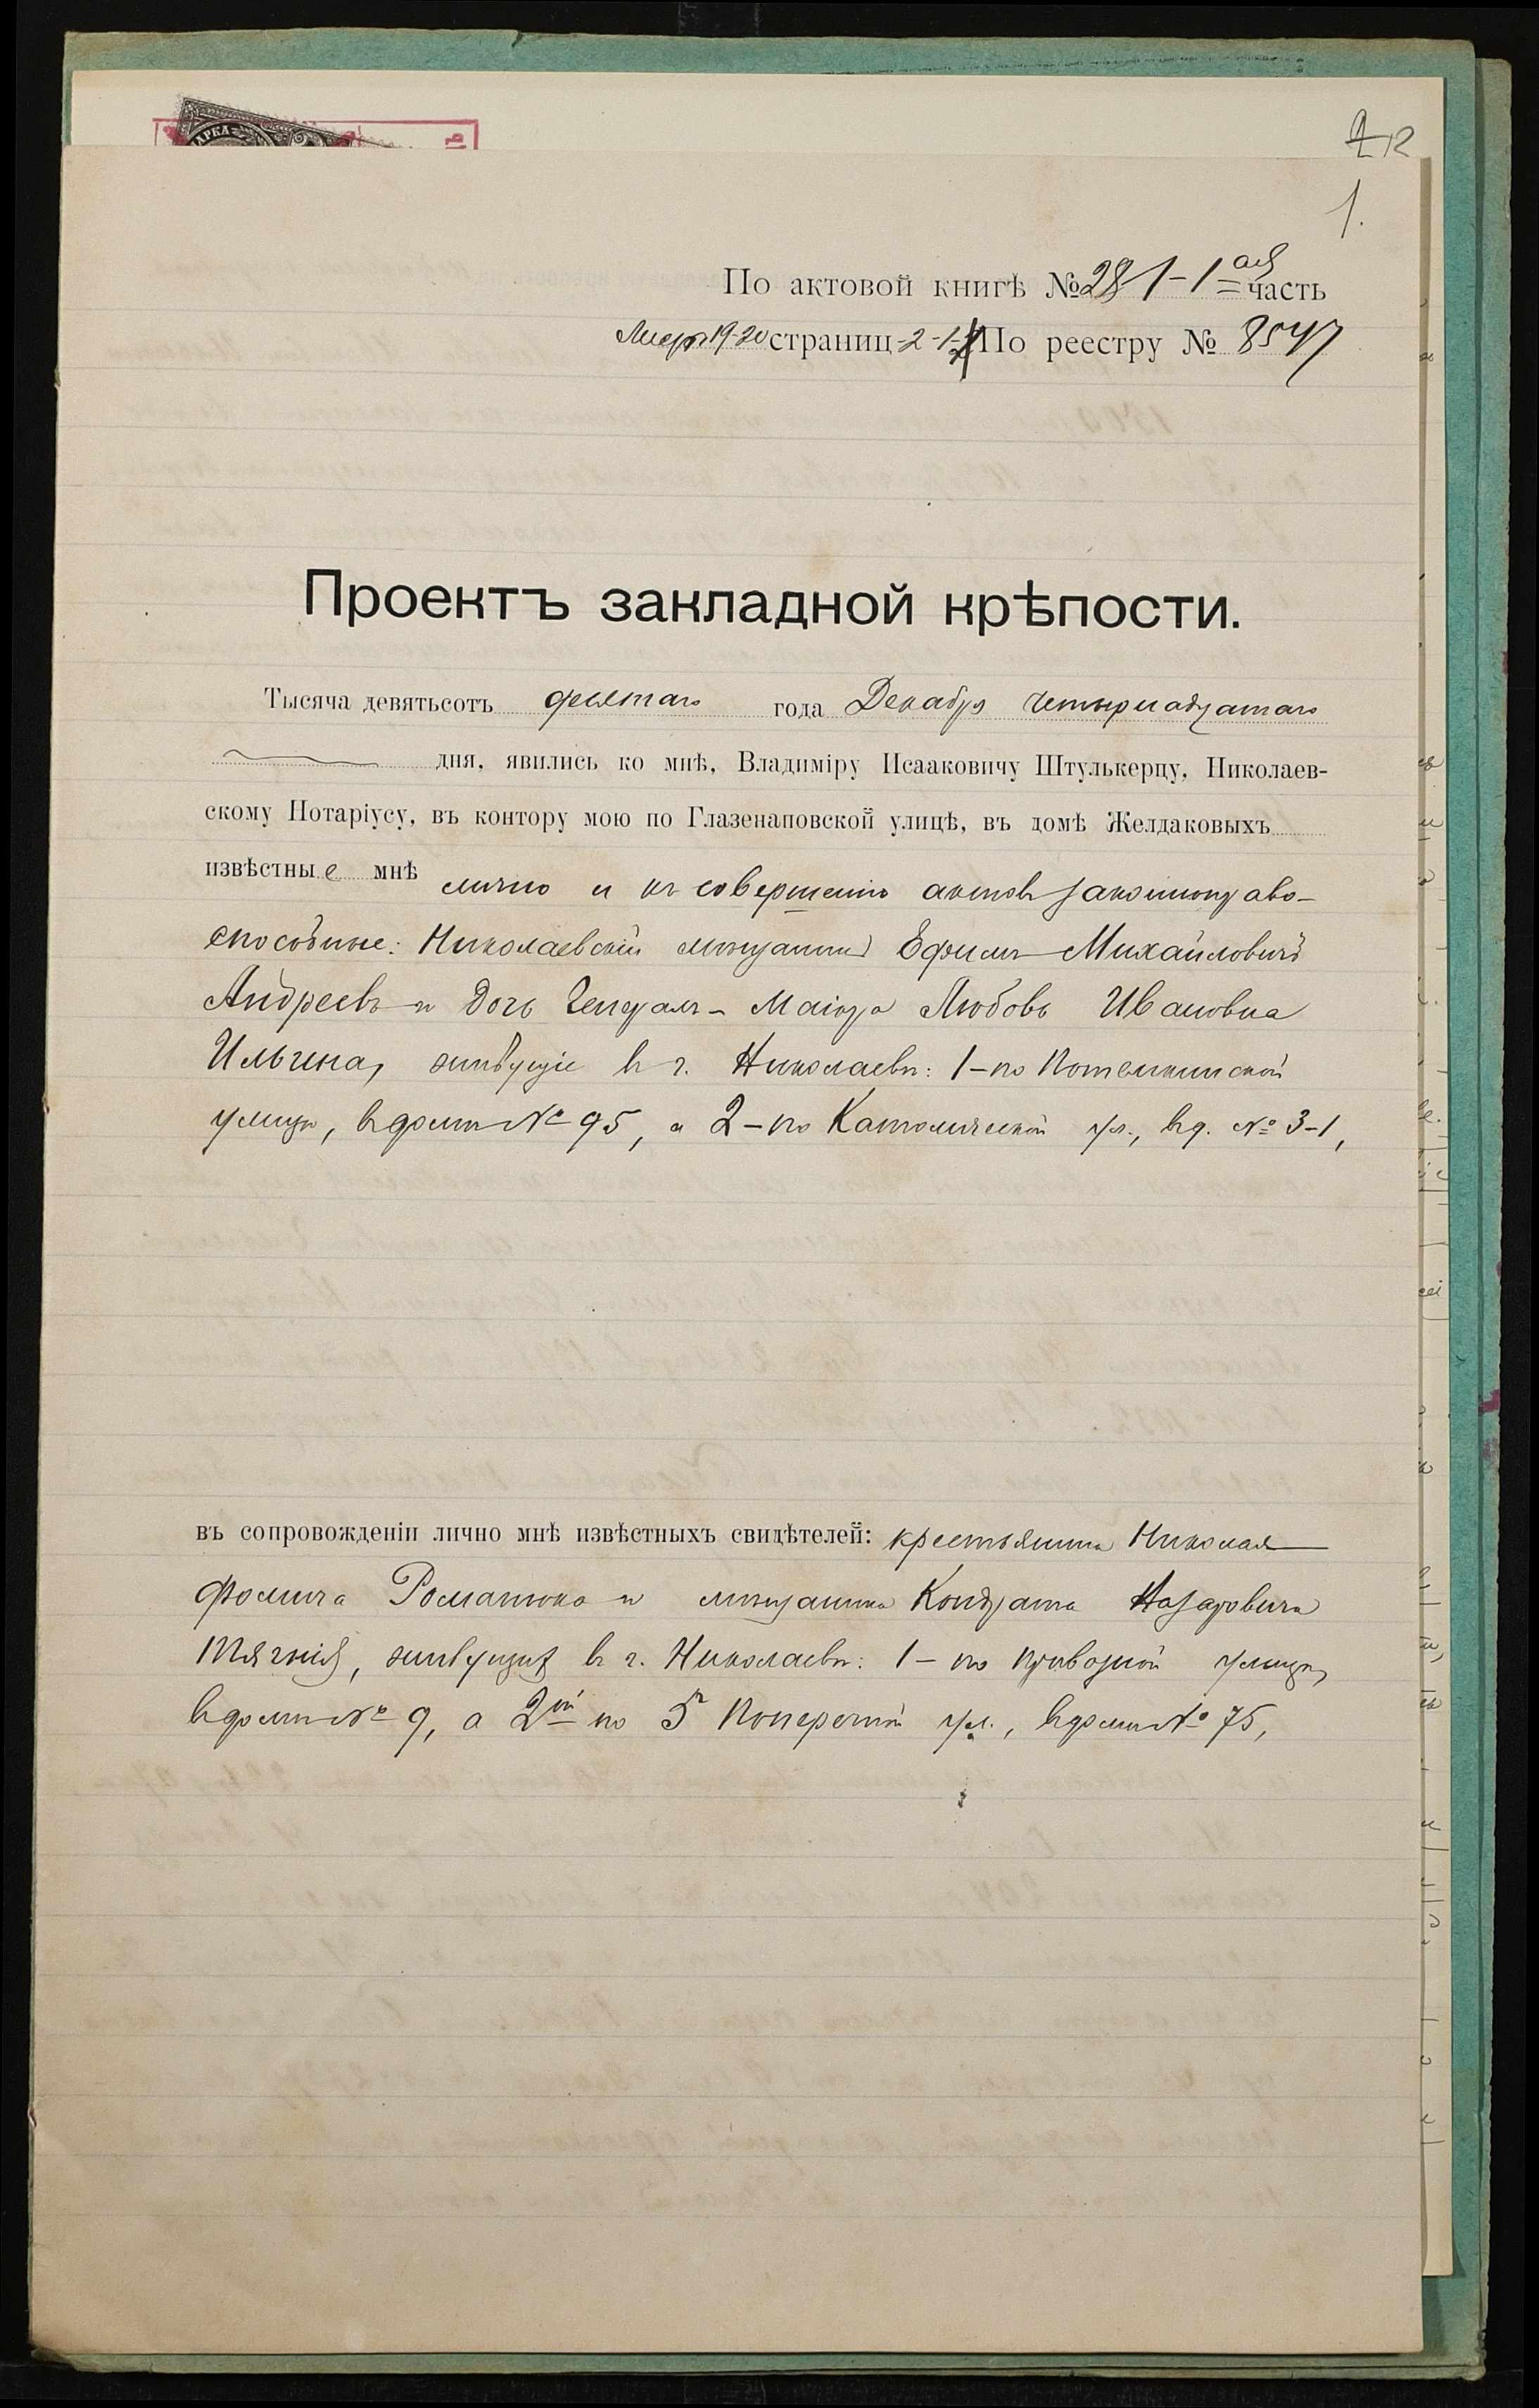 АРКА
12
1.
По актовой книгѣ № 281-1ая часть
Листъ 19-20 страниц 2-1- По реестру № 8547
Проектъ закладной крѣпости.
Тысяча девятьсотъ девятаго года Декабря четырнадцатаго
дня, явились ко мнѣ, Владиміру Исааковичу Штулькерцу, Николаев-
скому Нотаріусу, въ контору мою по Глазенаповской улицѣ, въ домѣ Желдаковыхъ
извѣстные мнѣ лично и къ совершенію актовъ законноправо-
способные: Николаевскій мѣщанинъ Ефимъ Михайловичъ
Андреевъ и дочь Генералъ-Маіора Любовь Ивановна
Ильина, живущіе въ г. Николаевѣ: 1-по Потемкинской
улицѣ, въ домѣ № 95, а 2-по Католической ул., въ д. № 3-1,
въ сопровожденіи лично мнѣ извѣстныхъ свидѣтелей: крестьянина Николая
Фомича Романюка и мѣщанина Кондрата Назаровича
живущихъ въ г. Николаевѣ: 1-по Привозной улицѣ,
въ домѣ № 9, а 2ой по 5й Поперечной ул., въ домѣ № 75,